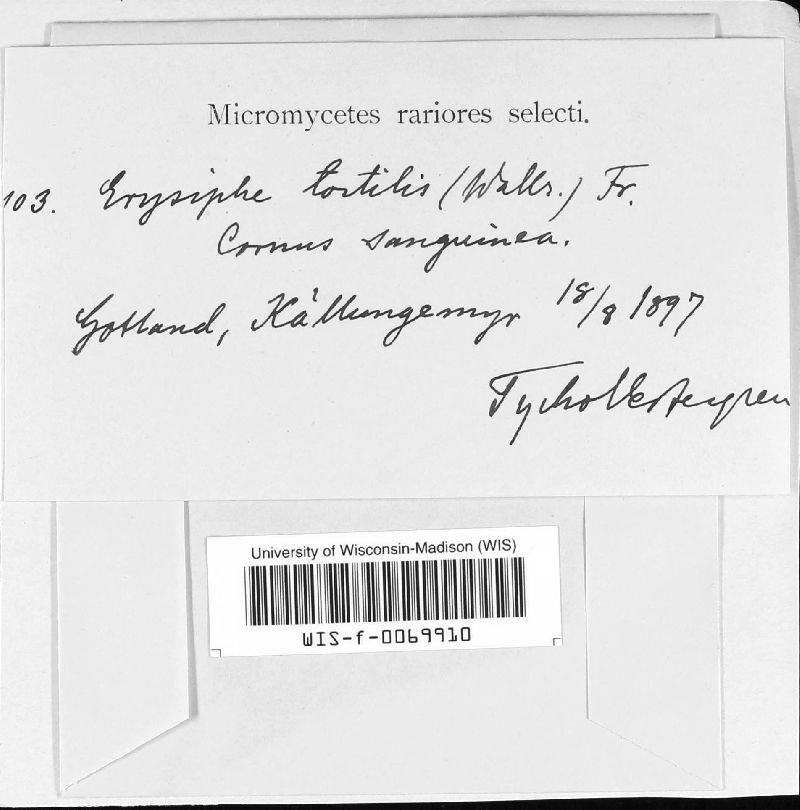 Micromycetes rariores selecti.
103. Erysiphe tortilis (Wallr.) Fr.
Cornus sanguinea.
Gotland, Källungemyr 18/8 1897
Tycho Vestergren
University of Wisconsin-Madison (WIS)
WIS-f-0069910